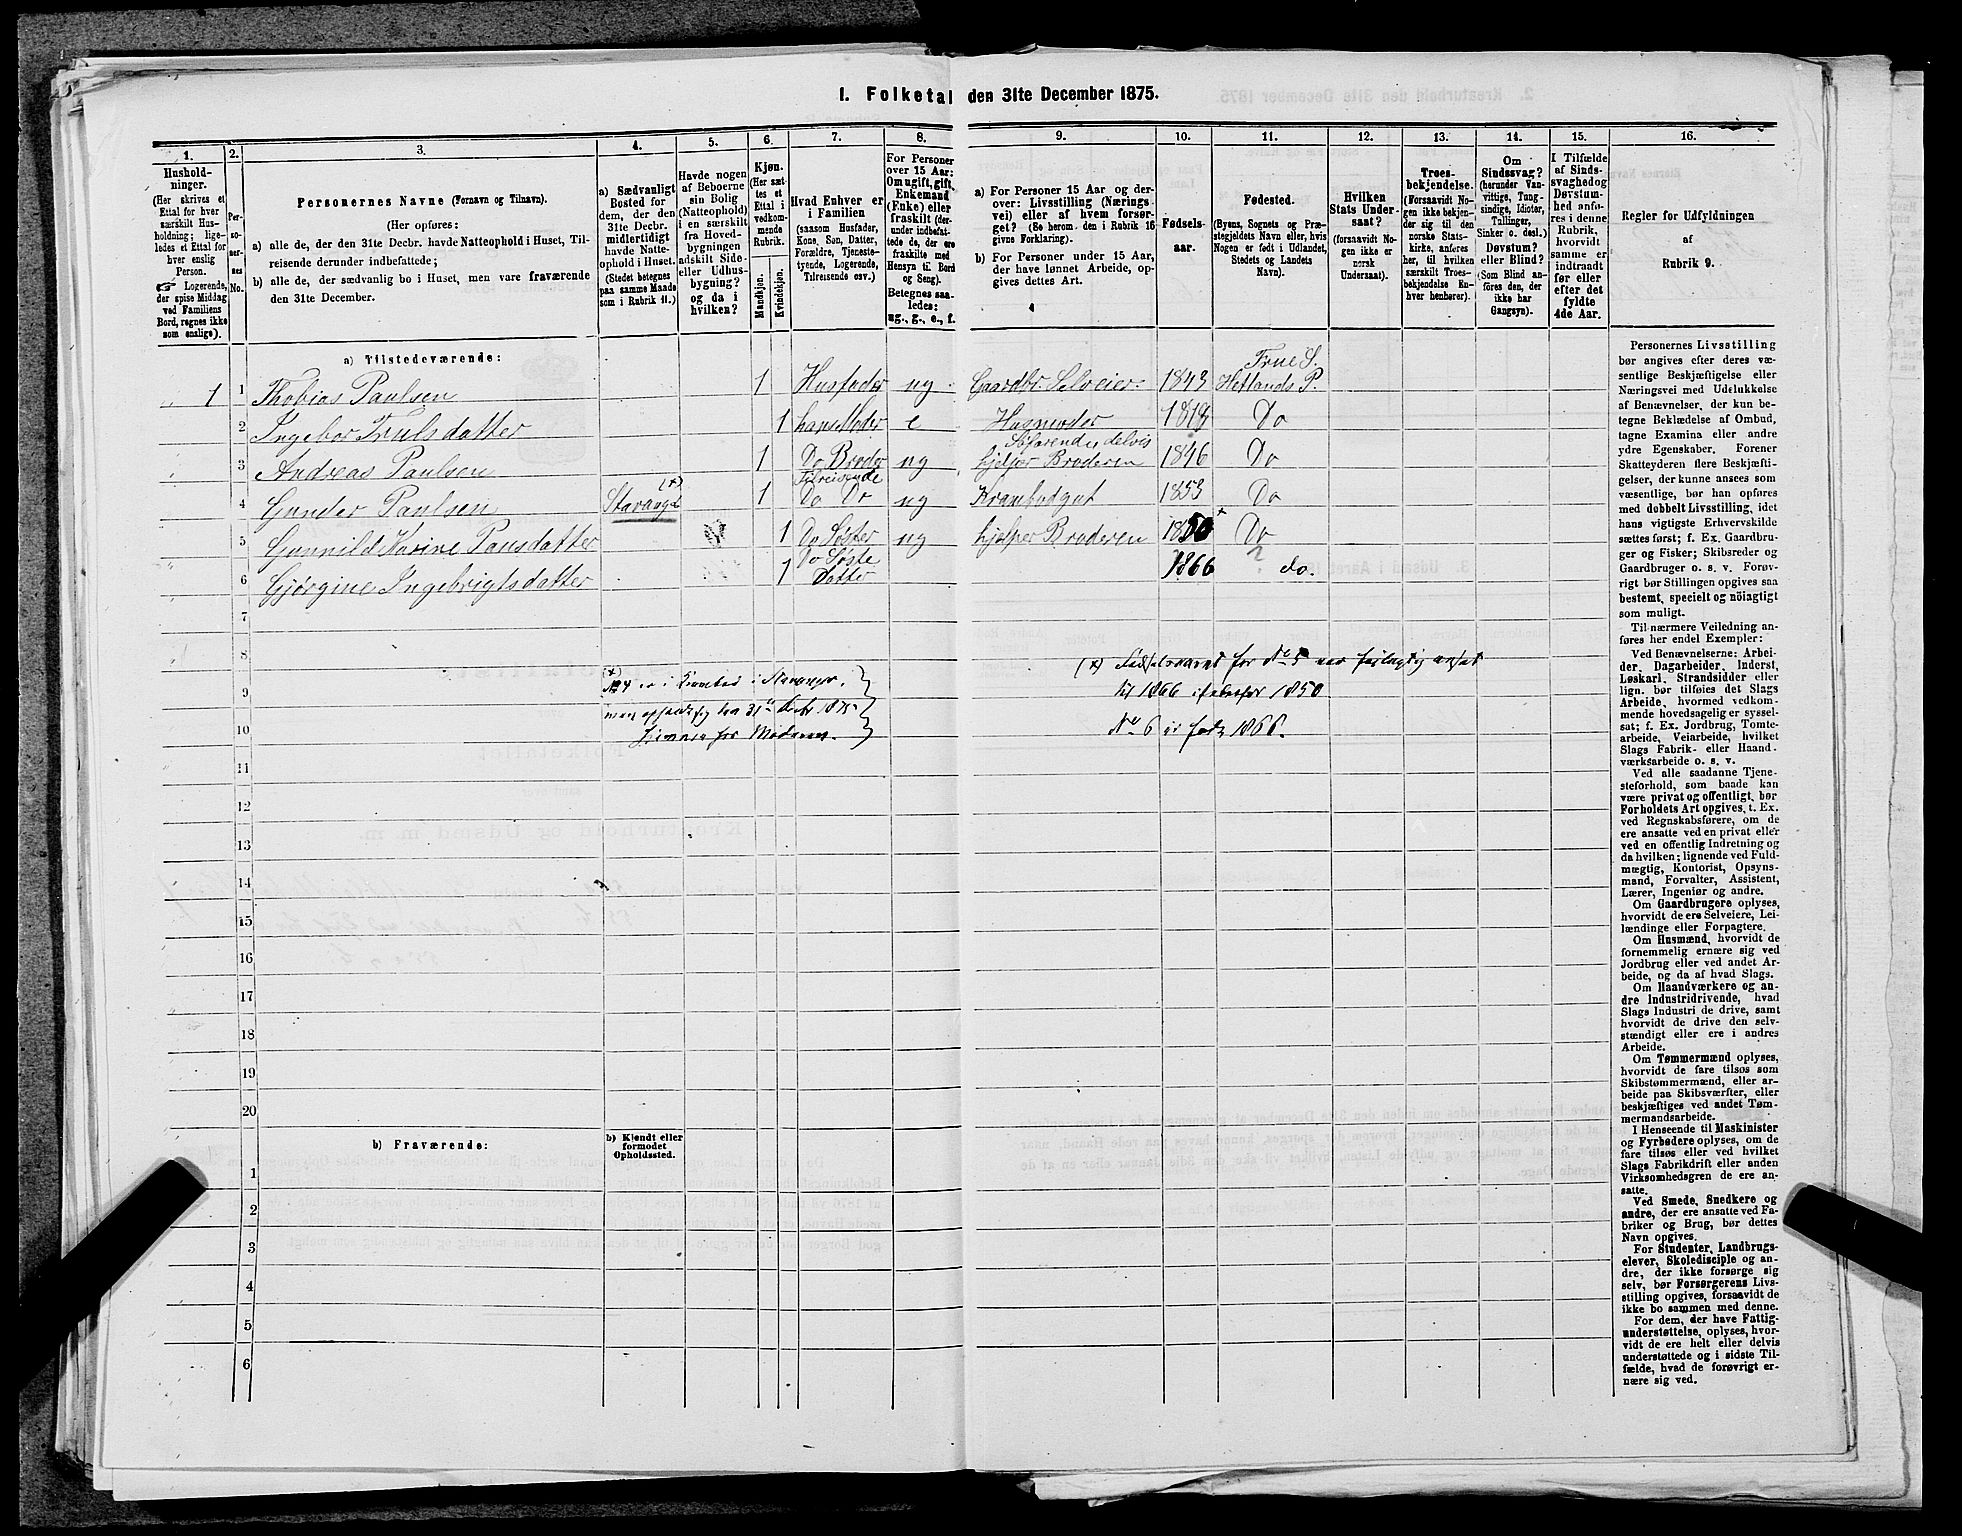 1. Folketal den 31te December 1875.
1.
2.
3.
4.
5.
6.
7.
8.
9.
10.
11.
12.
13.
14.
15.
16.
Hushold-
ninger.
(Her skrives et
Ettal for hver
særskilt Hus-
holdning; lige-
ledes et Ettal for
hver enslig
Person.
☞ Logerende,
der spise Middag
ved Familiens
Bord, regnes ikke
som enslige).
Per-
so-
ner-
nes
No.
Personernes Navne (Fornavn og Tilnavn).
(Her opføres:
a) alle de, der den 31te Decbr. havde Natteophold i Huset, Til-
reisende derunder indbefattede;
b) alle de, der sædvanlig bo i Huset, men vare fraværende
den 31te December.
a) Sædvanligt
Bosted for
dem, der den
31te Decbr.
midlertidigt
havde Natte-
ophold i Huset.
(Stedet betegnes
paa samme Maade
som i Rubrik 11.)
Havde nogen
af Beboerne
sin Bolig
(Natteophold)
i en særskilt
fra Hoved-
bygningen
adskilt Side-
eller Udhus-
bygning?
og da i
hvilken?
Kjøn.
(Her sæt-
tes et
Ettal i
vedkom-
mende
Rubrik.
Mandkjøn.
Kvindekjøn.
Hvad Enhver er
i Familien
(saasom Husfader,
Kone, Søn, Datter,
Forældre, Tjeneste-
tyende, Logerende,
Tilreisende osv.)
For Personer
over 15 Aar:
Om ugift, gift,
Enkemand
(Enke) eller
fraskilt (der-
under indbefat-
tede de, der ere
fraskilte med
Hensyn til Bord
og Seng).
Betegnes saa-
ledes:
ug., g., e., f.
a) For Personer 15 Aar og der-
over: Livsstilling (Nærings
vei) eller af hvem forsør-
get? (Se herom. den i Rubrik 16
givne Forklaring).
b) For Personer under 15 Aar,
der have lønnet Arbeide, op-
gives dettes Art.
Fødsels-
aar.
Fødested.
(Byens, Sognets og Præ-
stegjeldets Navn eller, hvis
Nogen er født i Udlandet,
Stedets og Landets
Navn).
Hvilken
Stats Under-
saat?
(forsaavidt No-
gen ikke er
norsk
Undersaat).
Troes-
bekjendelse.
(Forsaavidt No-
gen ikke bekjen-
der sig til den
norske Stats-
kirke, anføres
her, til hvilken
særskilt Troes-
bekjendelse En-
hver henhører).
Om
Sindssvag?
(herunder Van-
vittige, Tung-
sindige, Idioter,
Tullinger,
Sinker o. desl.)
Døvstum?
eller Blind?
(Som Blind an-
føres den, der
ikke har
Gangsyn).
I Tilfælde
af Sinds-
svaghed og
Døvstum-
hed anfø-
res i denne
Rubrik,
hvorvidt
samme er
indtraadt
før eller
efter det
fyldte
4de Aar.
Regler for Udfyldningen
af
Rubrik 9.
a) Tilstedeværende:
1 1 Thobias Paulsen 1 Husfader ug Gaardbr. Selveier 1843 Frue S. Hetlands P.
2 Ingebor Trulsdatter 1 hans Moder e 1818 Do
3 Andreas Paulsen 1 Do Broder ug delvis hjelper Broderen 1846 Do
4 Gunder Paulsen Stavanger (x) 1 Tilreisende Do Do ug Krambodgut 1853 Do
5 Gunnild Karine Pausdatter 1 Do Søster ug hjelper Broderen 1850 x Do
6 Gjørgine Ingebrigtsdatter 1 Do Søste Datter 1866 ? do.
7
8
9
10
11
12
13
14
15
16
17
18
19
20
(x)
No 4 er i i Stavanger,
31te Decbr 1875
hjemme hos Moderen.
(x) Fødselsaaret for No 5 var feilagtig ansat
til 1866 istedetfor 1850
No 6 er født 1866.
b) Fraværende:
b) Kjendt eller
formodet
Opholdssted.
1
2
3
4
5
6
Personernes Livsstilling
bør angives efter deres væ-
sentlige Beskjæftigelse eller
Næringsvei med Udelukkelse
af Benævnelser, der kun be-
tegne Beklædelse af Ombud,
tagne Examina eller andre
ydre Egenskaber. Forener
Skatteyderen flere Beskjæfti-
gelser, der kunne ansees som
væsentlige, bør han opføres
med dobbelt Livsstilling, idet
hans vigtigste Erhvervskilde
sættes først; f. Ex. Gaardbru-
ger og Fisker; Skibsreder og
Gaardbruger o. s. v. Forøv-
rigt bør Stillingen opgives saa
bestemt, specielt og nøiagtigt
som muligt.
Til nærmere Veiledning an-
føres her endel Exempler:
Ved Benævnelserne: Arbei-
der, Dagarbeider, Inderst,
Løskarl, Strandsidder eller
lign. bør tilføies det Slags
Arbeide, hvormed vedkom-
mende hovedsagelig er syssel-
sat; f. Ex. Jordbrug, Tomte-
arbeide, Veiarbeide, hvilket
Slags Fabrik- eller Haand-
værksarbeide o. s. v.
Ved alle saadanne Tjene-
steforhold, som baade kan
være privat og offentligt, bør
Forholdets Art opgives, t. Ex.
ved Regnskabsførere, om de
ere ansatte ved en privat eller
ved en offentlig Indretning og
da hvilken; lignende ved Fuld-
mægtig, Kontorist, Opsyns-
mand, Forvalter, Assistent,
Lærer, Ingeniør og andre.
Om Gaardbrugere oplyses,
hvorvidt de ere Selveiere, Lei-
lændinge eller Forpagtere.
Om Husmænd, hvorvidt de
fornemmelig ernære sig ved
Jordbrug eller ved andet Ar-
beide, og da af hvad Slags.
Om Haandværkere og an-
dre Industridrivende, hvad
Slags Industri de drive, samt
hvorvidt de drive den selv-
stændigt eller ere i andres
Arbeide.
Om Tømmermænd oplyses,
hvorvidt de fare tilsøs som
Skibstømmermænd, eller ar-
beide paa Skibsværfter, eller
beskjæftiges ved andet Tøm-
mermandsarbeide.
I Henseende til Maskinister
og Fyrbødere oplyses, om de
fare tilsøs eller ved hvilket
Slags Fabrikdrift eller anden
Virksomhedsgren de ere an-
satte.
Ved Smede, Snedkere og
andre, der ere ansatte ved Fa-
briker og Brug, bør dettes
Navn opgives.
For Studenter, Landbrugs-
elever, Skoledisciple og an-
dre, der ikke forsørge sig
selv, bør Forsørgerens Livs-
stilling opgives, forsaavidt de
ikke bo sammen med denne.
For dem, der have Fattig-
understøttelse, oplyses, hvor-
vidt de ere helt eller delvis
understøttede og i sidste Til-
fælde, hvad de forøvrigt er-
nære sig ved.